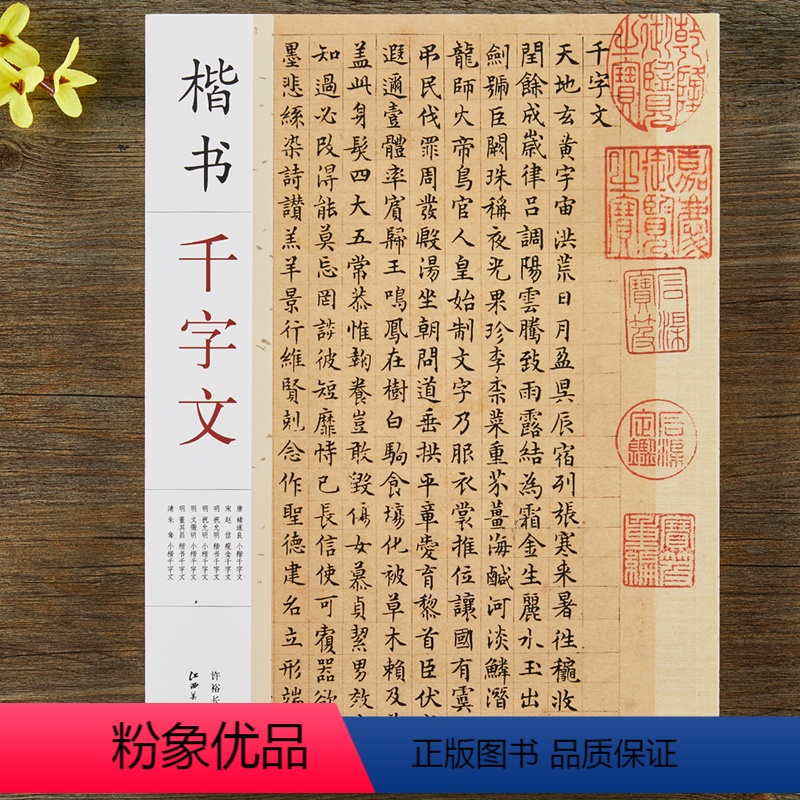 楷书
千字文
唐 褚遂良 小楷千字文
宋 赵 佶 瘦金千字文
明 祝允明 楷书千字文
明 祝允明 小楷千字文
明 文徵明 小楷千字文
明 董其昌 楷书千字文
清 朱 耷 小楷千字文
许裕长
江西美
千字文
天地玄黄宇宙洪荒日月盈昃辰宿列張寒来暑往穐收
閏餘成歲律吕調陽雲騰致雨露結為霜金生麗水玉出
劍號巨闕珠稱夜光果珍李柰菜重芥薑海鹹河淡鱗潛
龍師火帝鳥官人皇始制文字乃服衣裳推位讓國有虞
弔民伐罪周發殷湯坐朝問道垂拱平章愛育黎首臣伏
遐邇壹體率賓歸王鳴鳳在樹白駒食場化被草木賴及
盖此身髮四大五常恭惟鞠養豈敢毀傷女慕貞絜男效
知過必改得能莫忘罔談彼短靡恃己長信使可覆器欲
墨悲絲染詩讚羔羊景行維賢剋念作聖德建名立形端
乾隆御覽之寶
嘉慶御覽之寶
石渠寶笈
石渠定鑑
寶笈重編
粉象优品
正版图书 品质保证